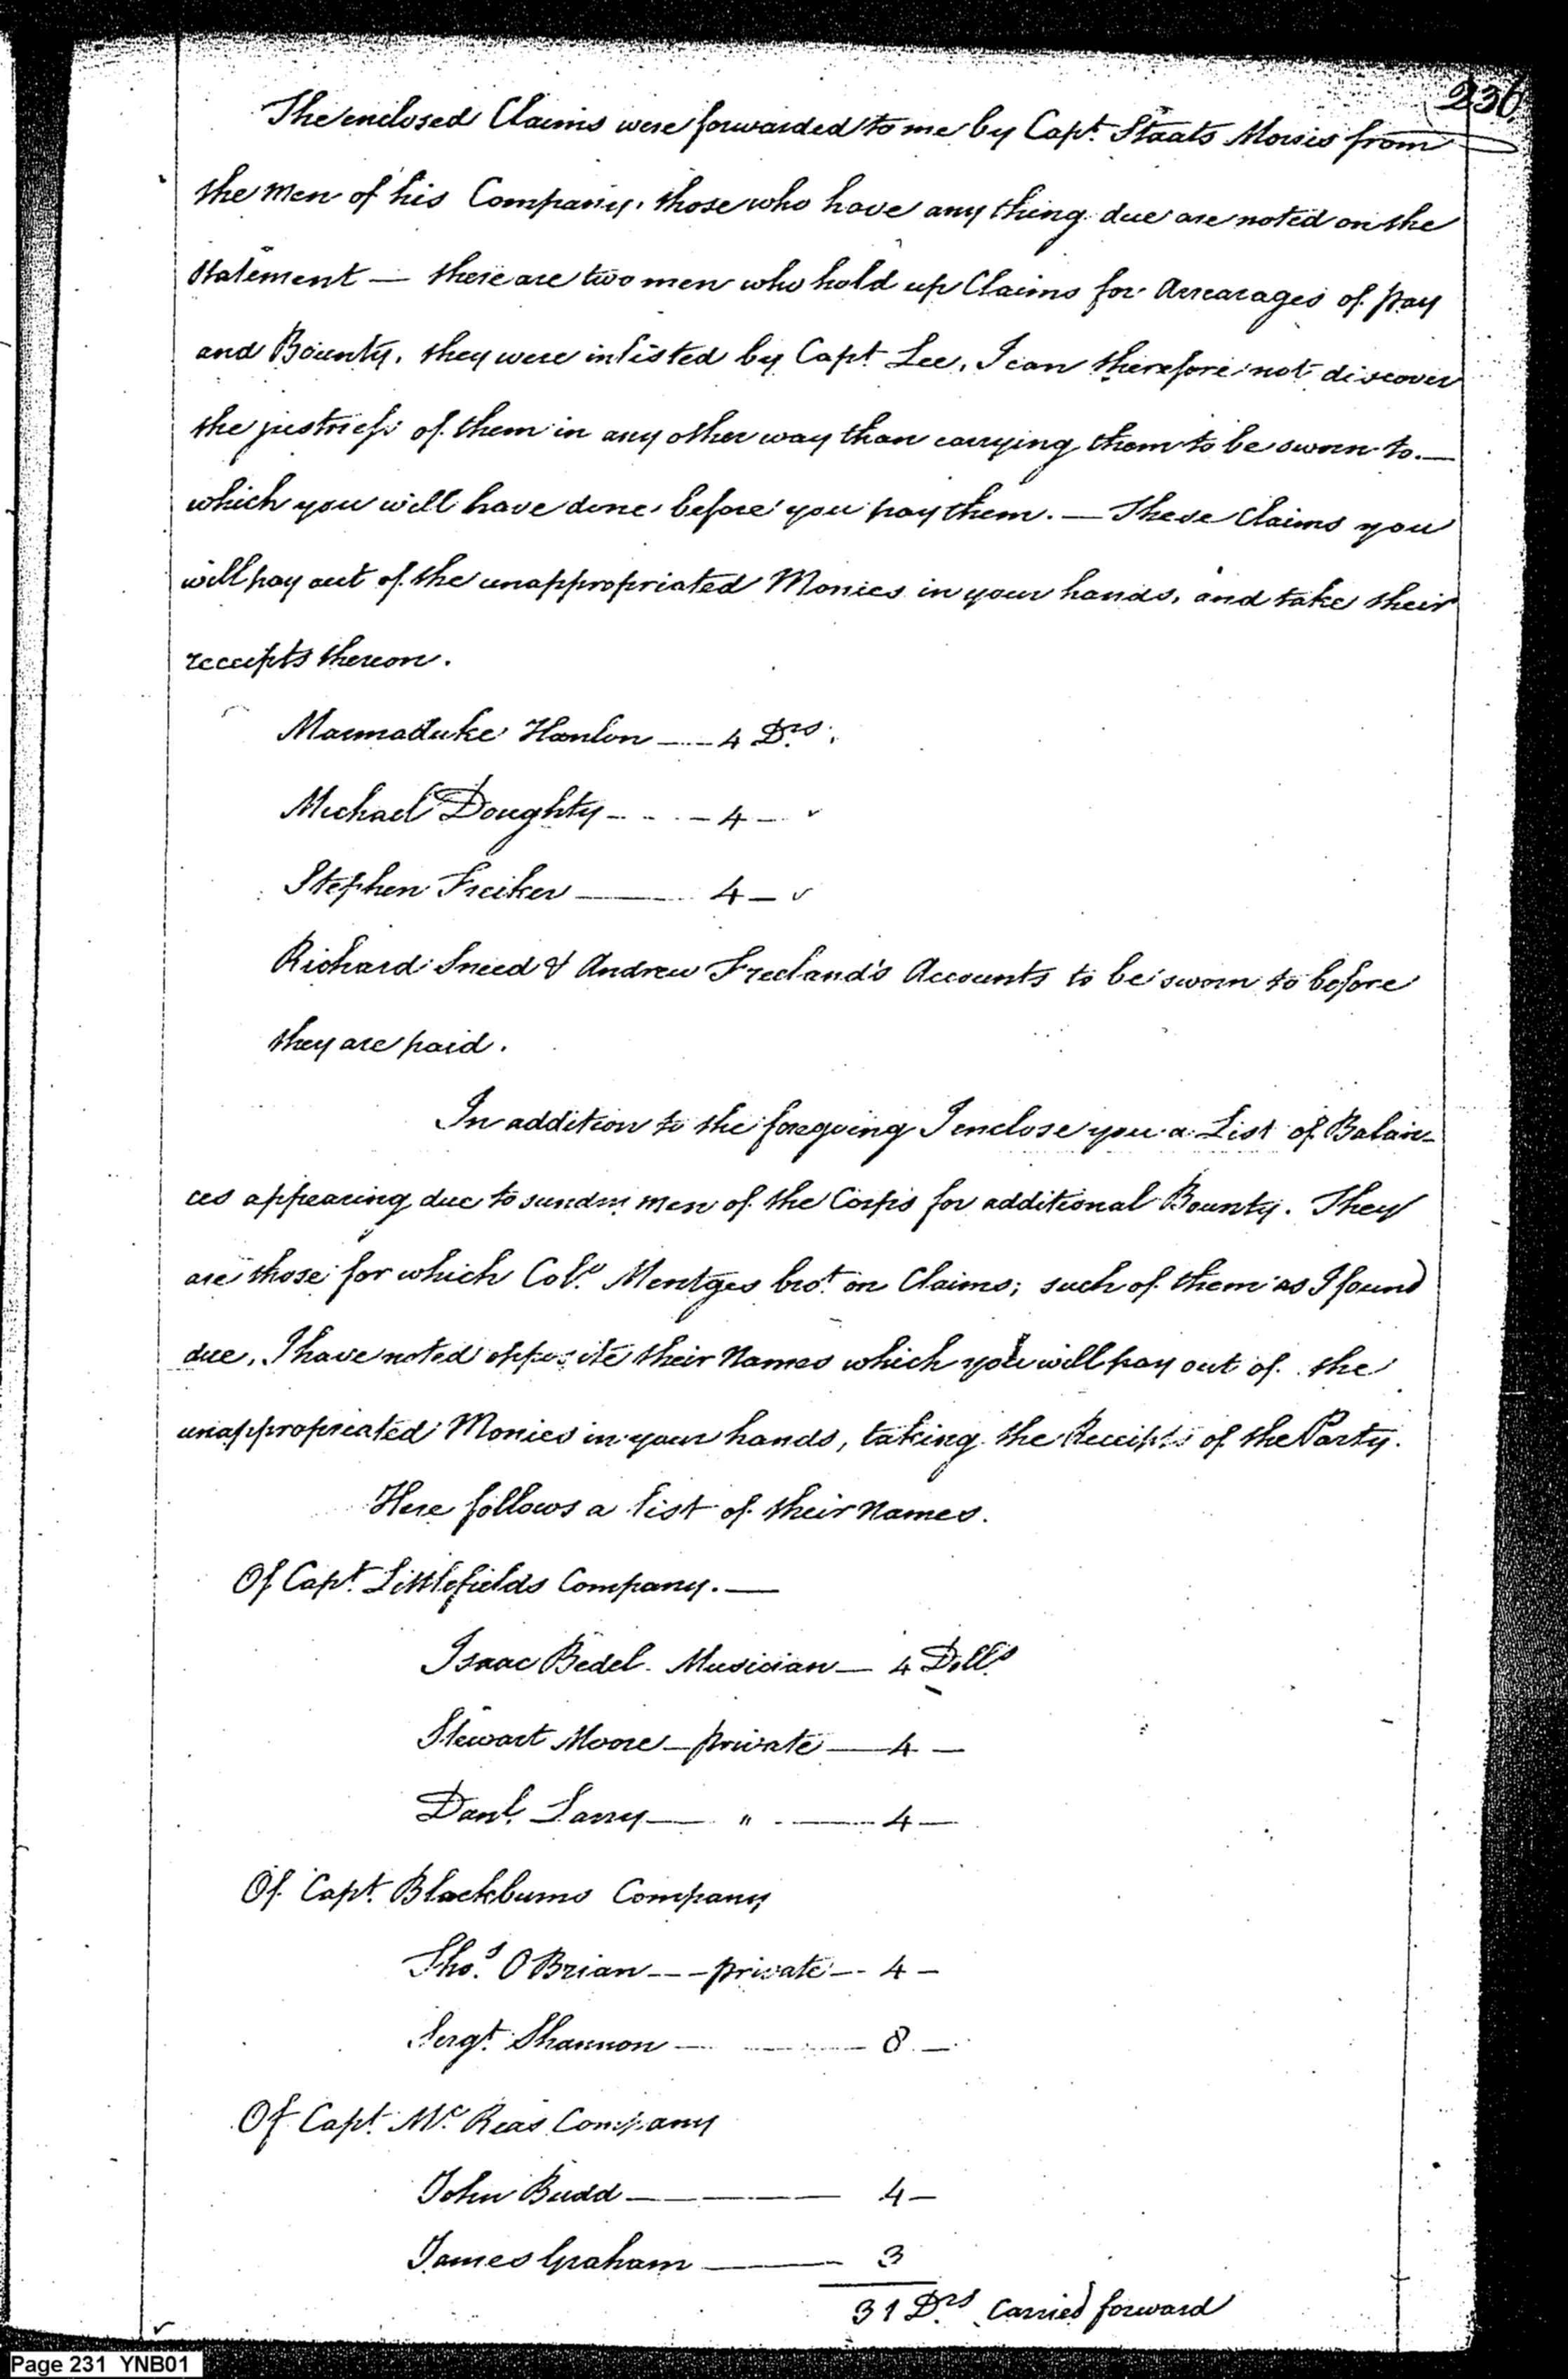 236
The enclosed Claims were forwarded to me by Capt. Staats Morris from
the men of his Company, those who have any thing due are noted on the
Statement — there are two men who hold up Claims for Arrearages of pay
and Bounty, they were inlisted by Capt Lee, I can therefore not discover
the justness of them in any other way than carrying them to be sworn to. —
which you will have done before you pay them. — These Claims you
will pay out of the unappropriated Monies in your hands, and take their
receipts thereon.
Marmaduke Hanlon — 4 Drs.
Michael Doughty - - - 4 — "
Stephen Freiker — 4 — "
Richard Sneed & Andrew Freeland's Accounts to be sworn to before
they are paid.
In addition to the foregoing I enclose you a List of Balan-
ces appearing due to sundry men of the Corps for additional Bounty. They
are those for which Colo. Mentges brot. on Claims; such of them as I found
due, I have noted opposite their Names which you will pay out of the
unappropriated Monies in your hands, taking the Receipts of the Party.
Here follows a list of their Names.
Of Capt. Littlefields Company. —
Isaac Bedel. Musician — 4 Dolls
Stewart Moore — private — 4 —
Danl. Larry — " — 4 —
Of Capt. Blackburns Company
Thos. O Brian - - - private - - 4 —
Sergt. Shannon — 8 —
Of Capt. Mc. Reas Company
John Budd — 4 —
James Graham — 3
31 Drs. Carried forward
Page 231 YNB01